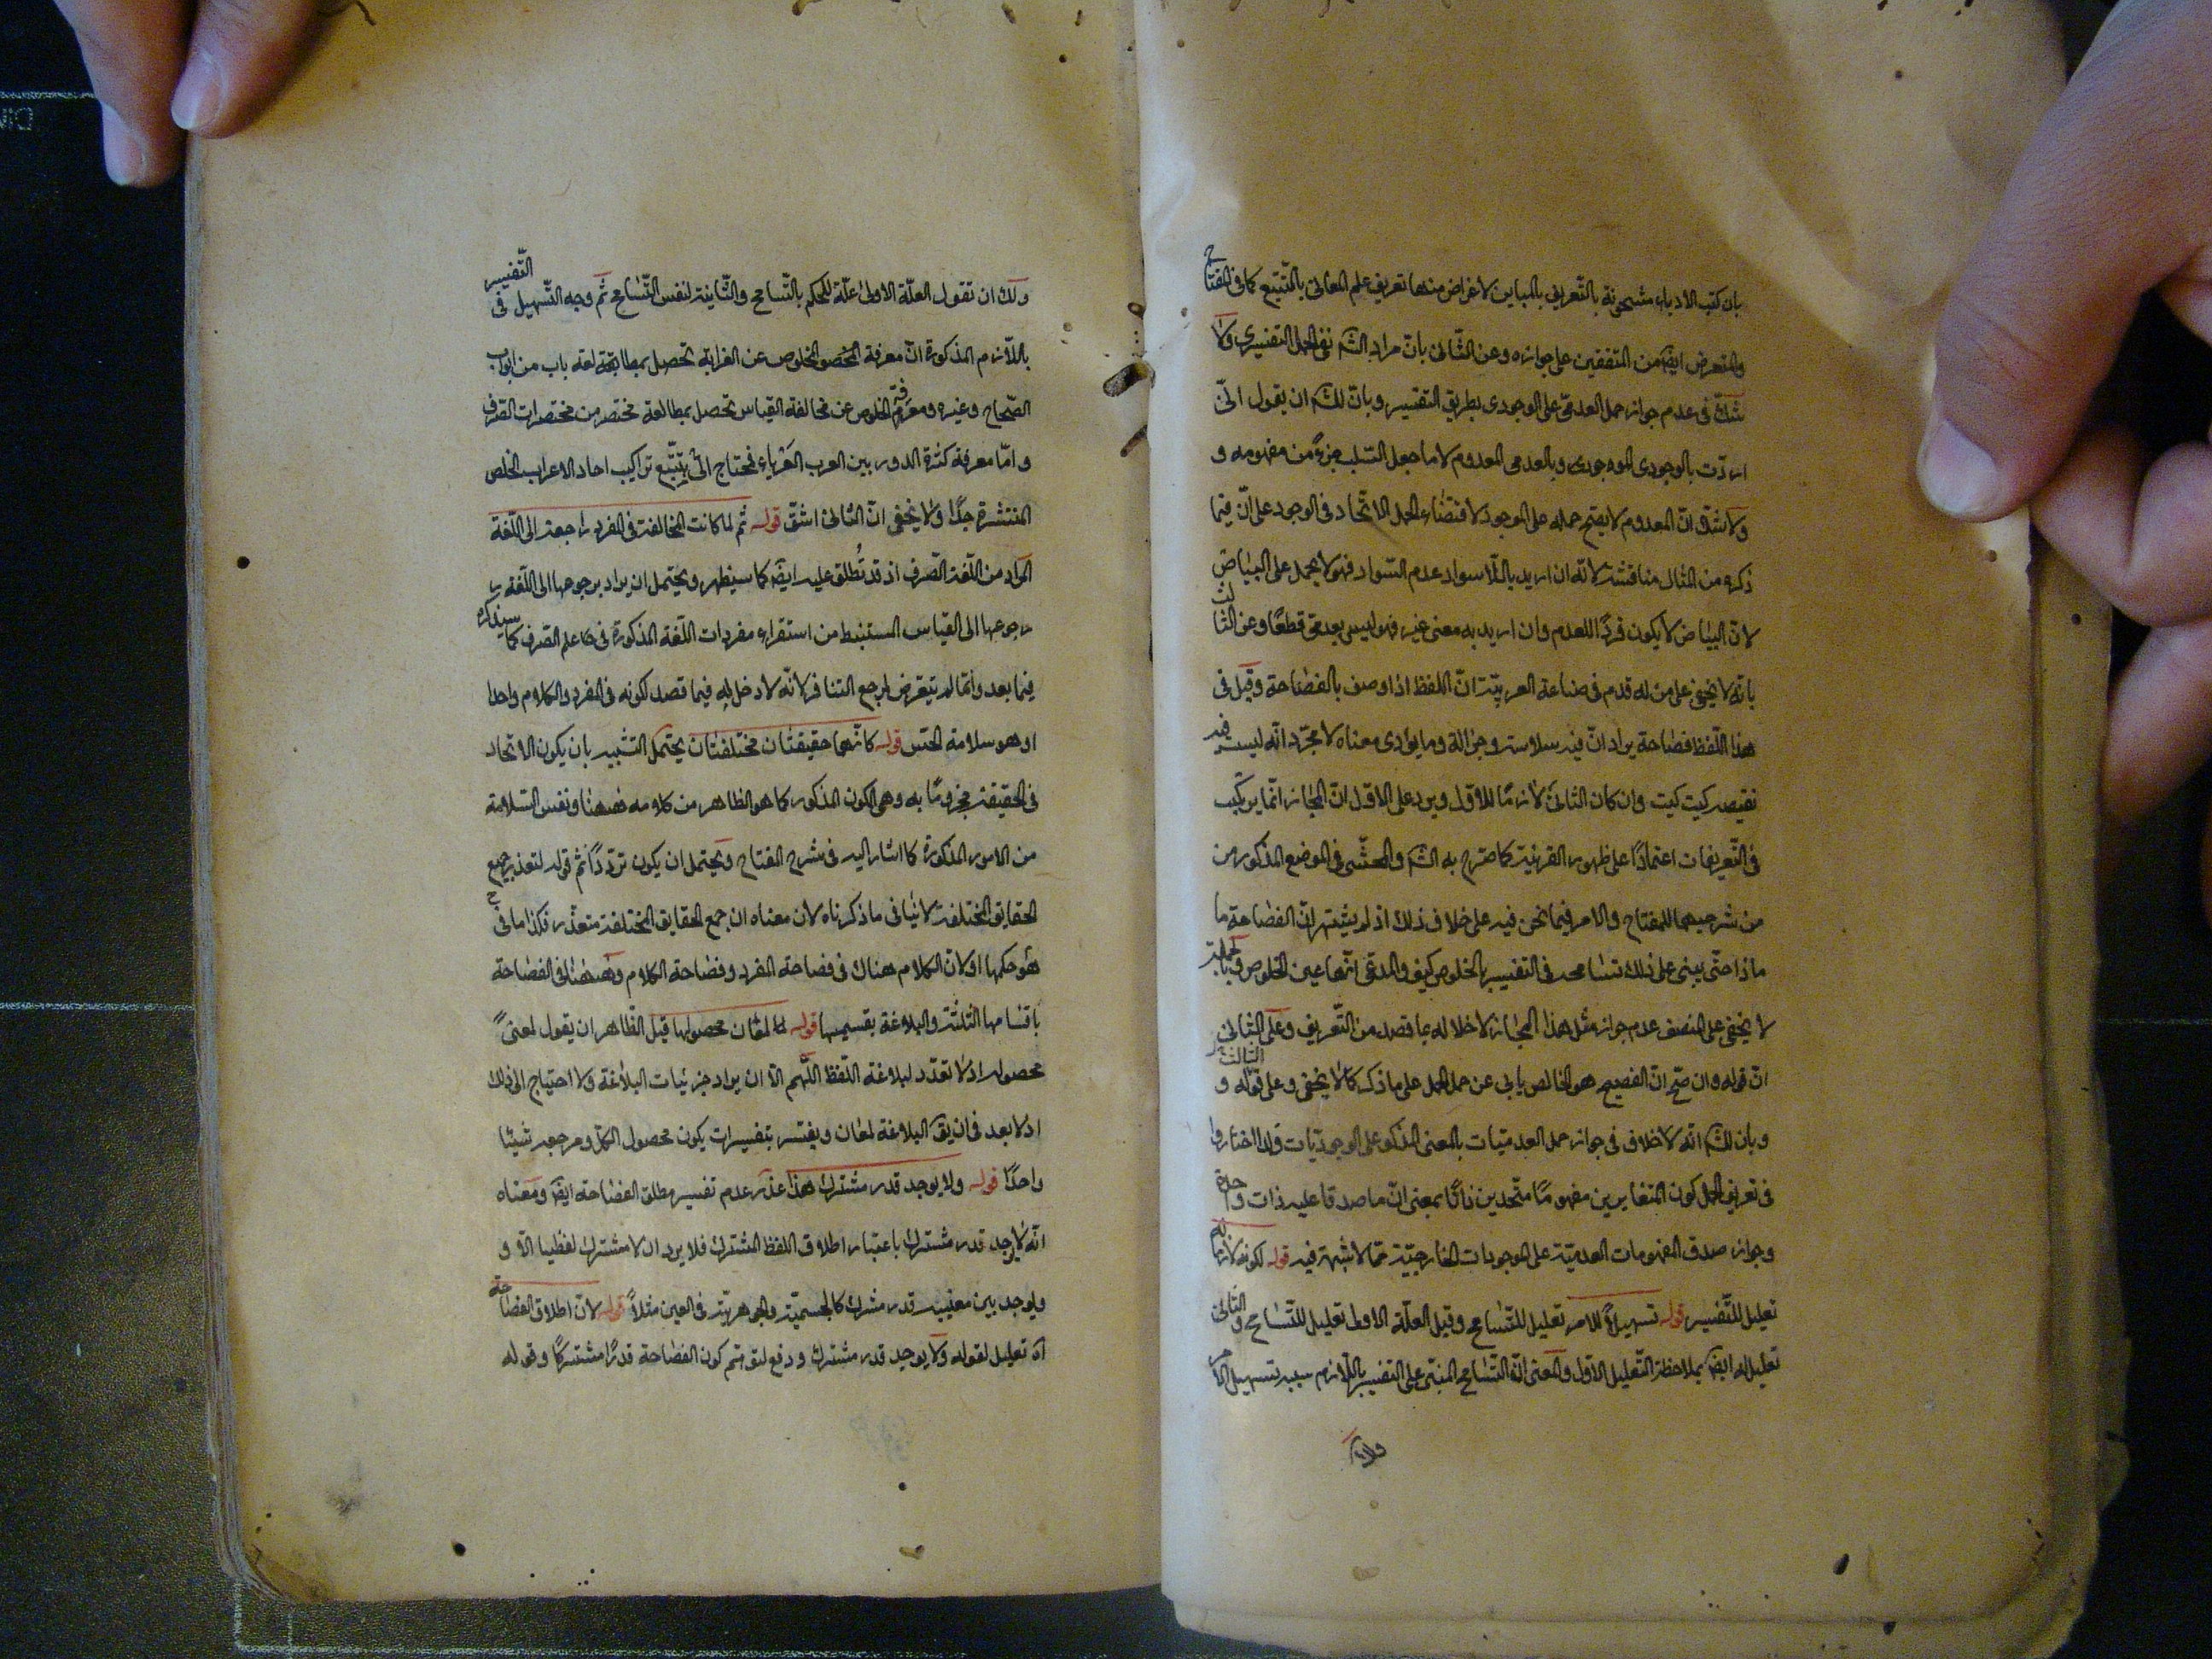 بان كتب الادباء مشحونة بالتّعريف بالمباين لاغراض منها تعريف علم المعانى بالتّتبّع كما فى المفتاح
والمتعرض ايضا من المتفقين على جوازه وعن الثّانى بانّ مراد الشّه نفى الحمل التفسيرى ولا
شكّ فى عدم جواز حمل العدمىّ على الوجودى بطريق التفسير وبانّ لك ان يقول ان
اردت بالوجودى الموجودى وبالعدمى المعدوم لا ما جعل السّلب جزءً من مفهومه و
ولا شكّ انّ المعدوم لا يصّح حمله على الموجود لاقتضاء الحمل الاتّحاد فى الوجود على انّ فيما
ذكره من المثال مناقشة لانّه ان اريد باللّاسواد عدم السّواد فهو لا يحمل على البياض
لانّ البياض لا يكون فردًا للعدم وان اريد به معنى غيره فهو ليس بعدمىّ قطعًا وعن الثالث
بانّه لا يخفى على من له قدم فى صناعة العربيّة انّ اللفظ اذا وصف بالفصاحة وقيل فى
هذا اللّفظ فصاحة يراد انّ فيه سلاسة وجزالة وما يؤدى معناه لا مجرّد انّه ليس فيه
نقيصة كيت كيت وان كان الثانى لازمًا للاوّل ويرد على الاوّل انّ المجاز انّما يرتكب
فى التّعريفات اعتمادًا على ظهور القرينة كما صرّح به الشّه والمحشّى فى الموضع المذكور من
من شرحيهما للمفتاح والامر فيما نحن فيه على خلاف ذلك اذ لم يشتهر انّ الفصاحة ما
ماذا حتّى يبنى على ذلك تسامحه فى التفسير بالخلوص كيف والمدعّى انّها عين الخلوص وبالجملة
لا يخفى على المنصف عدم جواز مثل هذا المجاز لاخلاله بما قصد من التّعريف وعلى الثانى
انّ قوله وان صّح انّ الفصيح هو الخالص يابى عن حمل الحمل على ما ذكره كما لا يخفى وعلى الثالث قوله و
وبان للشّه انّه لا خلاف فى جواز حمل العدميّات بالمعنى المذكور على الوجوديّات ولذا اختاروا
فى تعريف الحمل كون المتغايرين مفهومًا متّحدين ذاتًا بمعنى انّ ما صدقا عليه ذات واحدة
وجواز صدق المفهومات العدميّة على الموجودات الخارجيّة ممّا لا شبهة فيه قوله لكونه لازما له
تعليل للتّفسير قوله تسهيلاً للامر تعليل للتّسامح وقيل العلّة الاولى تعليل للتّسامح والثانى
تعليل له ايضا بملاحظة التّعليل الاوّل والمعنى انّ التّسامح المبنّى على التفسير باللّازم سببه تسهيل الامر
ولك ان تقول العلّة الاولى علّة للحكم بالتّسامح والثّانية لنفس التّسامح ثم وجه التّسهيل فى التّفسير
باللّازم المذكورة انّ معرفة الخلوص عن الغرابة تحصل بمطالعة لغة باب من ابواب
الصّحاح وغيره ومعرفة الخلوص عن مخالفة القياس تحصل بمطالعة مختصر من مختصرات الصّرف
وامّا معرفة كثرة الدور بين العرب العرباء فيحتاج الى تتّبع تراكيب احاد الاعراب الخلص
المنتشرة جدًّا ولا يخفى انّ الثانى اشقّ قوله ثم لما كانت المخالفة فى المفرد راجعة الى اللّغة
المراد من اللّغة الصّرف اذ قد تُطلق عليه ايضا كما سيظهر ويحتمل ان يراد برجوعها الى اللّغة ر
رجوعها الى القياس المستنبط من استقراء مفردات اللّغة المذكورة فى علم الصّرف كما سيذكره
فيما بعد وانّما لم يتعرّض لمرجع التنافر لانّه لا دخل له فيما قصد لكونه فى المفرد والكلام واحدا
او هو سلامة الحسّ قوله كانّهما حقيقتان مختلفتان يحتمل التشبيه بان يكون الاتحاد
فى الحقيقة مجزومًا به وهى الكون المذكور كما هو الظاهر من كلامه ههنا ونفس السّلامة
من الامور المذكورة كما اشار اليه فى شرح المفتاح ويحتمل ان يكون تردّدًا ثم قوله لتعذر جمع
الحقايق المختلفة لا ينافى ما ذكرناه لان معناه ان جمع الحقايق المختلفة متعذّر فكذا ما فى
هو حكمها او لانّ الكلام هناك فى فصاحة المفرد وفصاحة الكلام وههنا فى الفصاحة
باقسامها الثلثة والبلاغة بقسميها قوله لمعان محصولها قيل الظّاهر ان يقول لمعنىً
محصوله اذ لا تعدّد لبلاغة اللّفظ اللّهم الّا ان يراد جزئيات البلاغة ولا احتياج الى ذلك
اذ لا بعد فى ان يق البلاغة لمعان ويفسّر بتفسيرات يكون محصول الكلّ ومرجعه شيئا
واحدًا قوله ولا يوجد قدر مشترك هذا عذر عدم تفسير مطلق الفصاحة ايضا ومعناه
انّه لا يوجد قدر مشترك باعتبار اطلاق اللفظ المشترك فلا يرد ان لا مشترك لفظيا الّا و
ويوجد بين معنييه قدر مشترك كالجسميّة والجوهريّة فى العين مثلاً قوله لانّ اطلاق الفصاحة
اه تعليل لقوله ولا يوجد قدر مشترك ودفع لتوهّم كون الفصاحة قدرًا مشتركًا وقوله